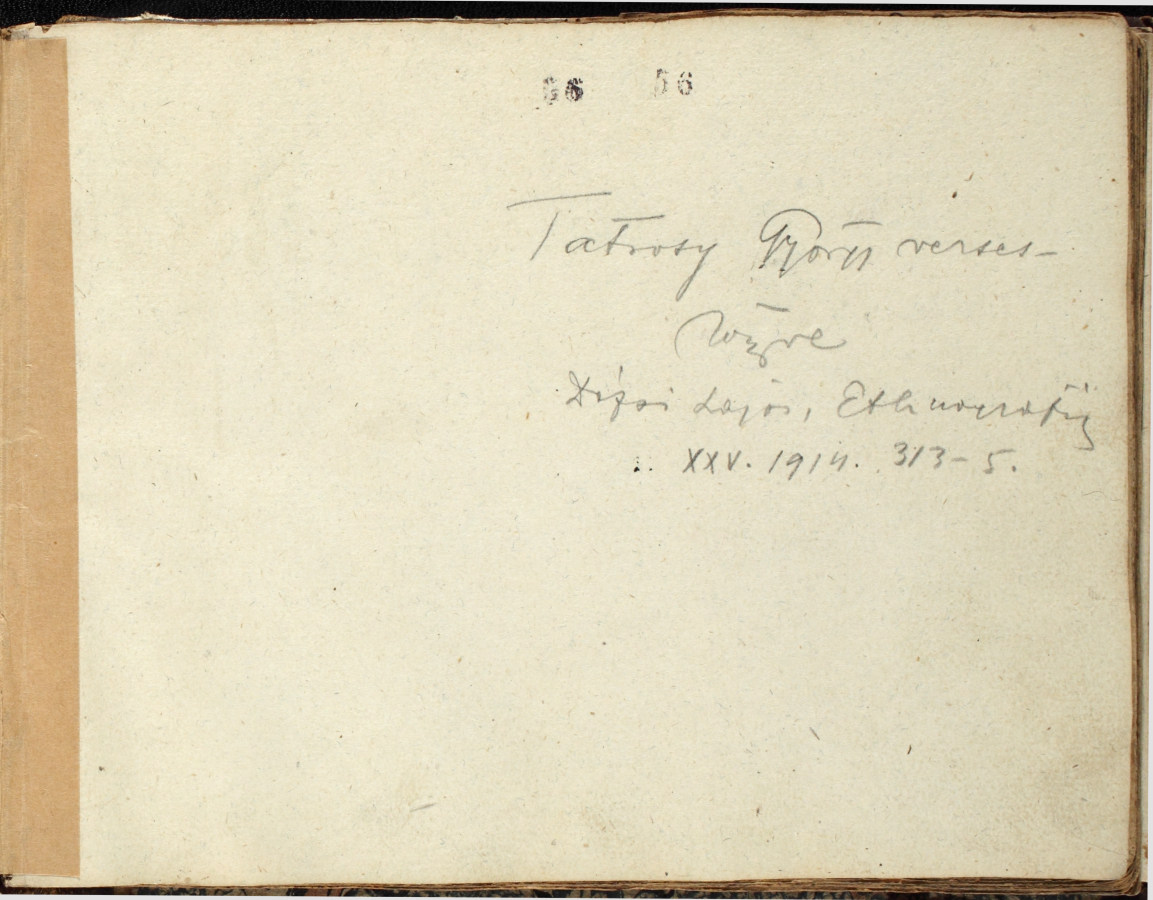 56 56
Tatrosy György verses-
könyve
Dézsi Lajos, Ethnographia
XXV. 1914. 313-5.